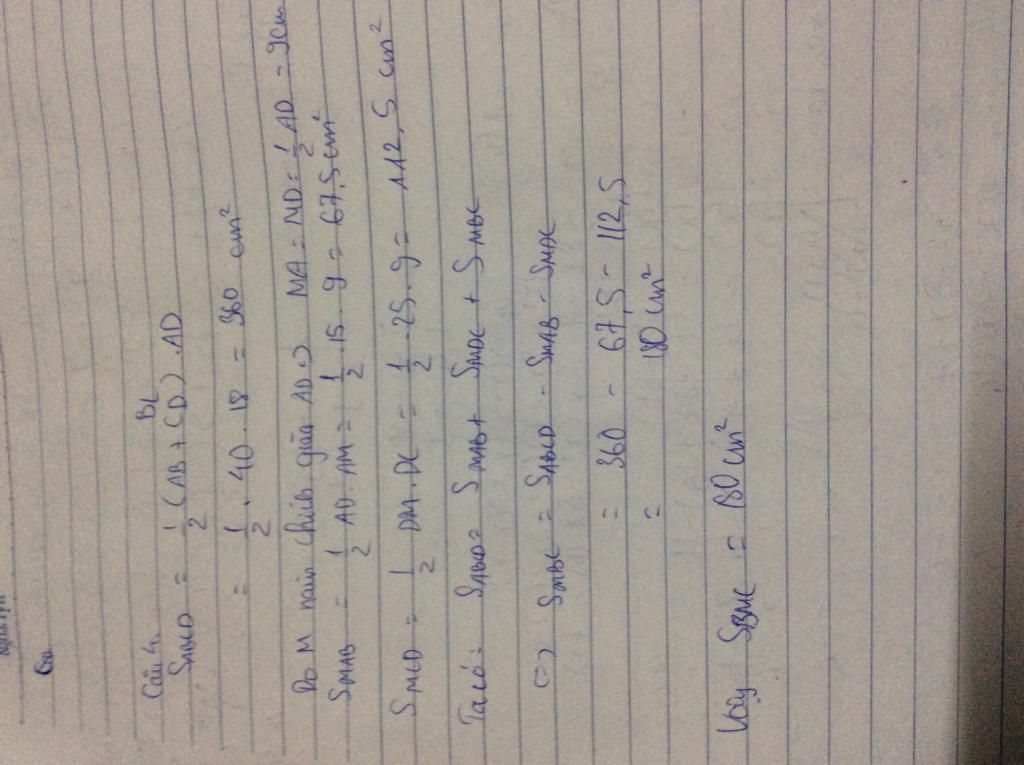 Câu 4.
BL
S_ABCD = 1/2 (AB + CD).AD
= 1/2 . 40 . 18 = 360 cm²
Do M nằm chính giữa AD => MA = MD = 1/2 AD = 9cm
S_MAB = 1/2 AD. AM = 1/2 . 15 . 9 = 67,5 cm²
S_MCD = 1/2 DM. DC = 1/2 . 25 . 9 = 112,5 cm²
Ta có: S_ABCD = S_MAB + S_MDC + S_MBC
=> S_MBC = S_ABCD - S_MAB - S_MDC
= 360 - 67,5 - 112,5
= 180 cm²
Vậy S_BMC = 180 cm²